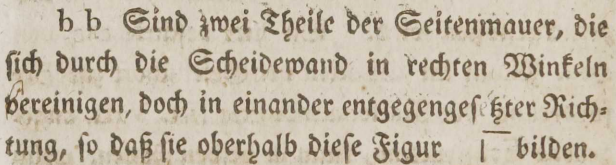 b b Sind zwei Theile der Seitenmauer, die
sich durch die Scheidewand in rechten Winkeln
vereinigen, doch in einander entgegengesetzter Rich-
tung, so daß sie oberhalb diese Figur bilden.